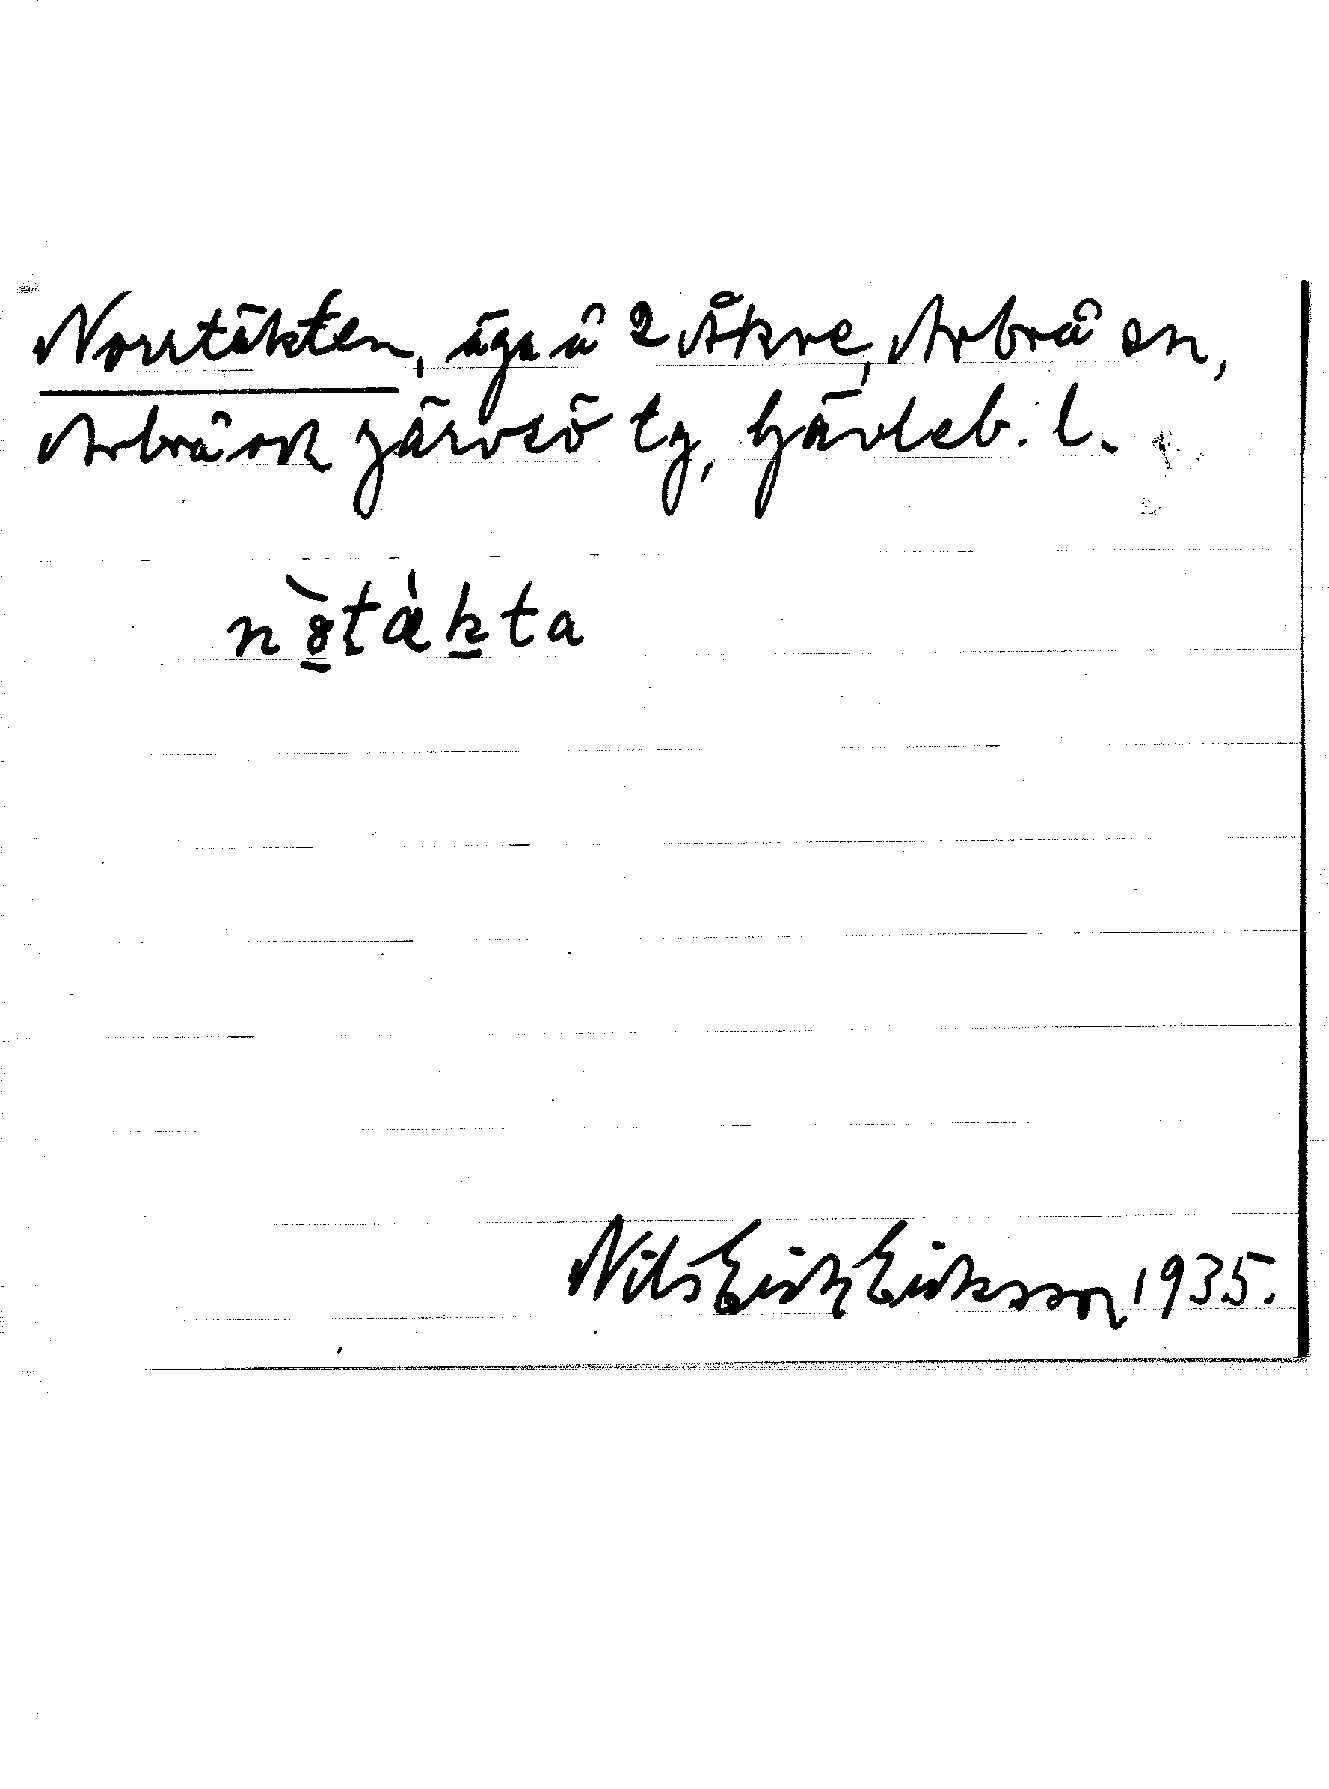 Norrtäkten, äga å 2 Åkre, Arbrå sn,
Arbrå och Järvsö tg, Gävleb. l.
nò̱táḵta
Nils Erik Eriksson 1935.